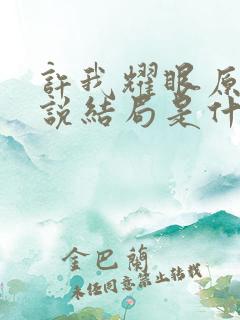 許我耀眼原
說結局是什
金巴蘭
未經同意禁止轉載